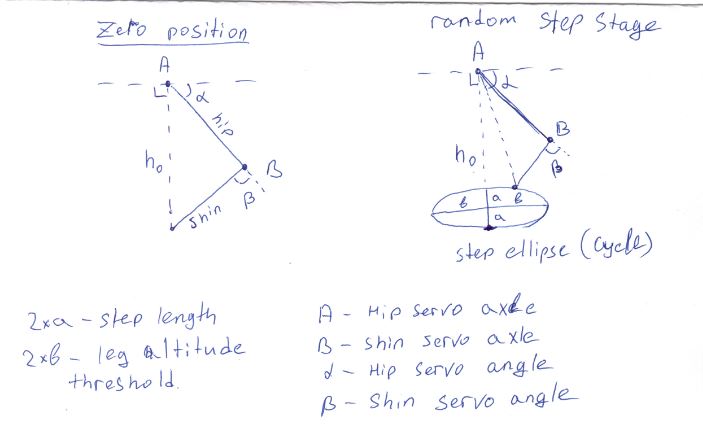 Zero position
random step stage
A
α
hip
h₀
B
β
shin
A
α
h₀
B
β
b
a
b
a
step ellipse (cycle)
2xa - step length
2xb - leg altitude
threshold.
A - Hip servo axle
B - shin servo axle
α - Hip servo angle
β - Shin servo angle